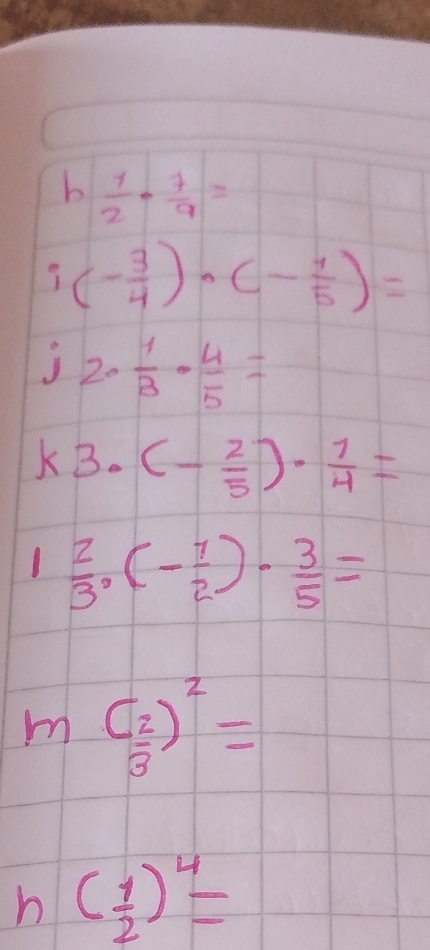 h 1/2 · 7/9 =
i (-3/4) · (-1/5) =
j 2 · 1/3 · 4/5 =
k 3 · (-2/5) · 1/4 =
l 2/3 · (-1/2) · 3/5 =
m (2/3)² =
n (1/2)⁴ =